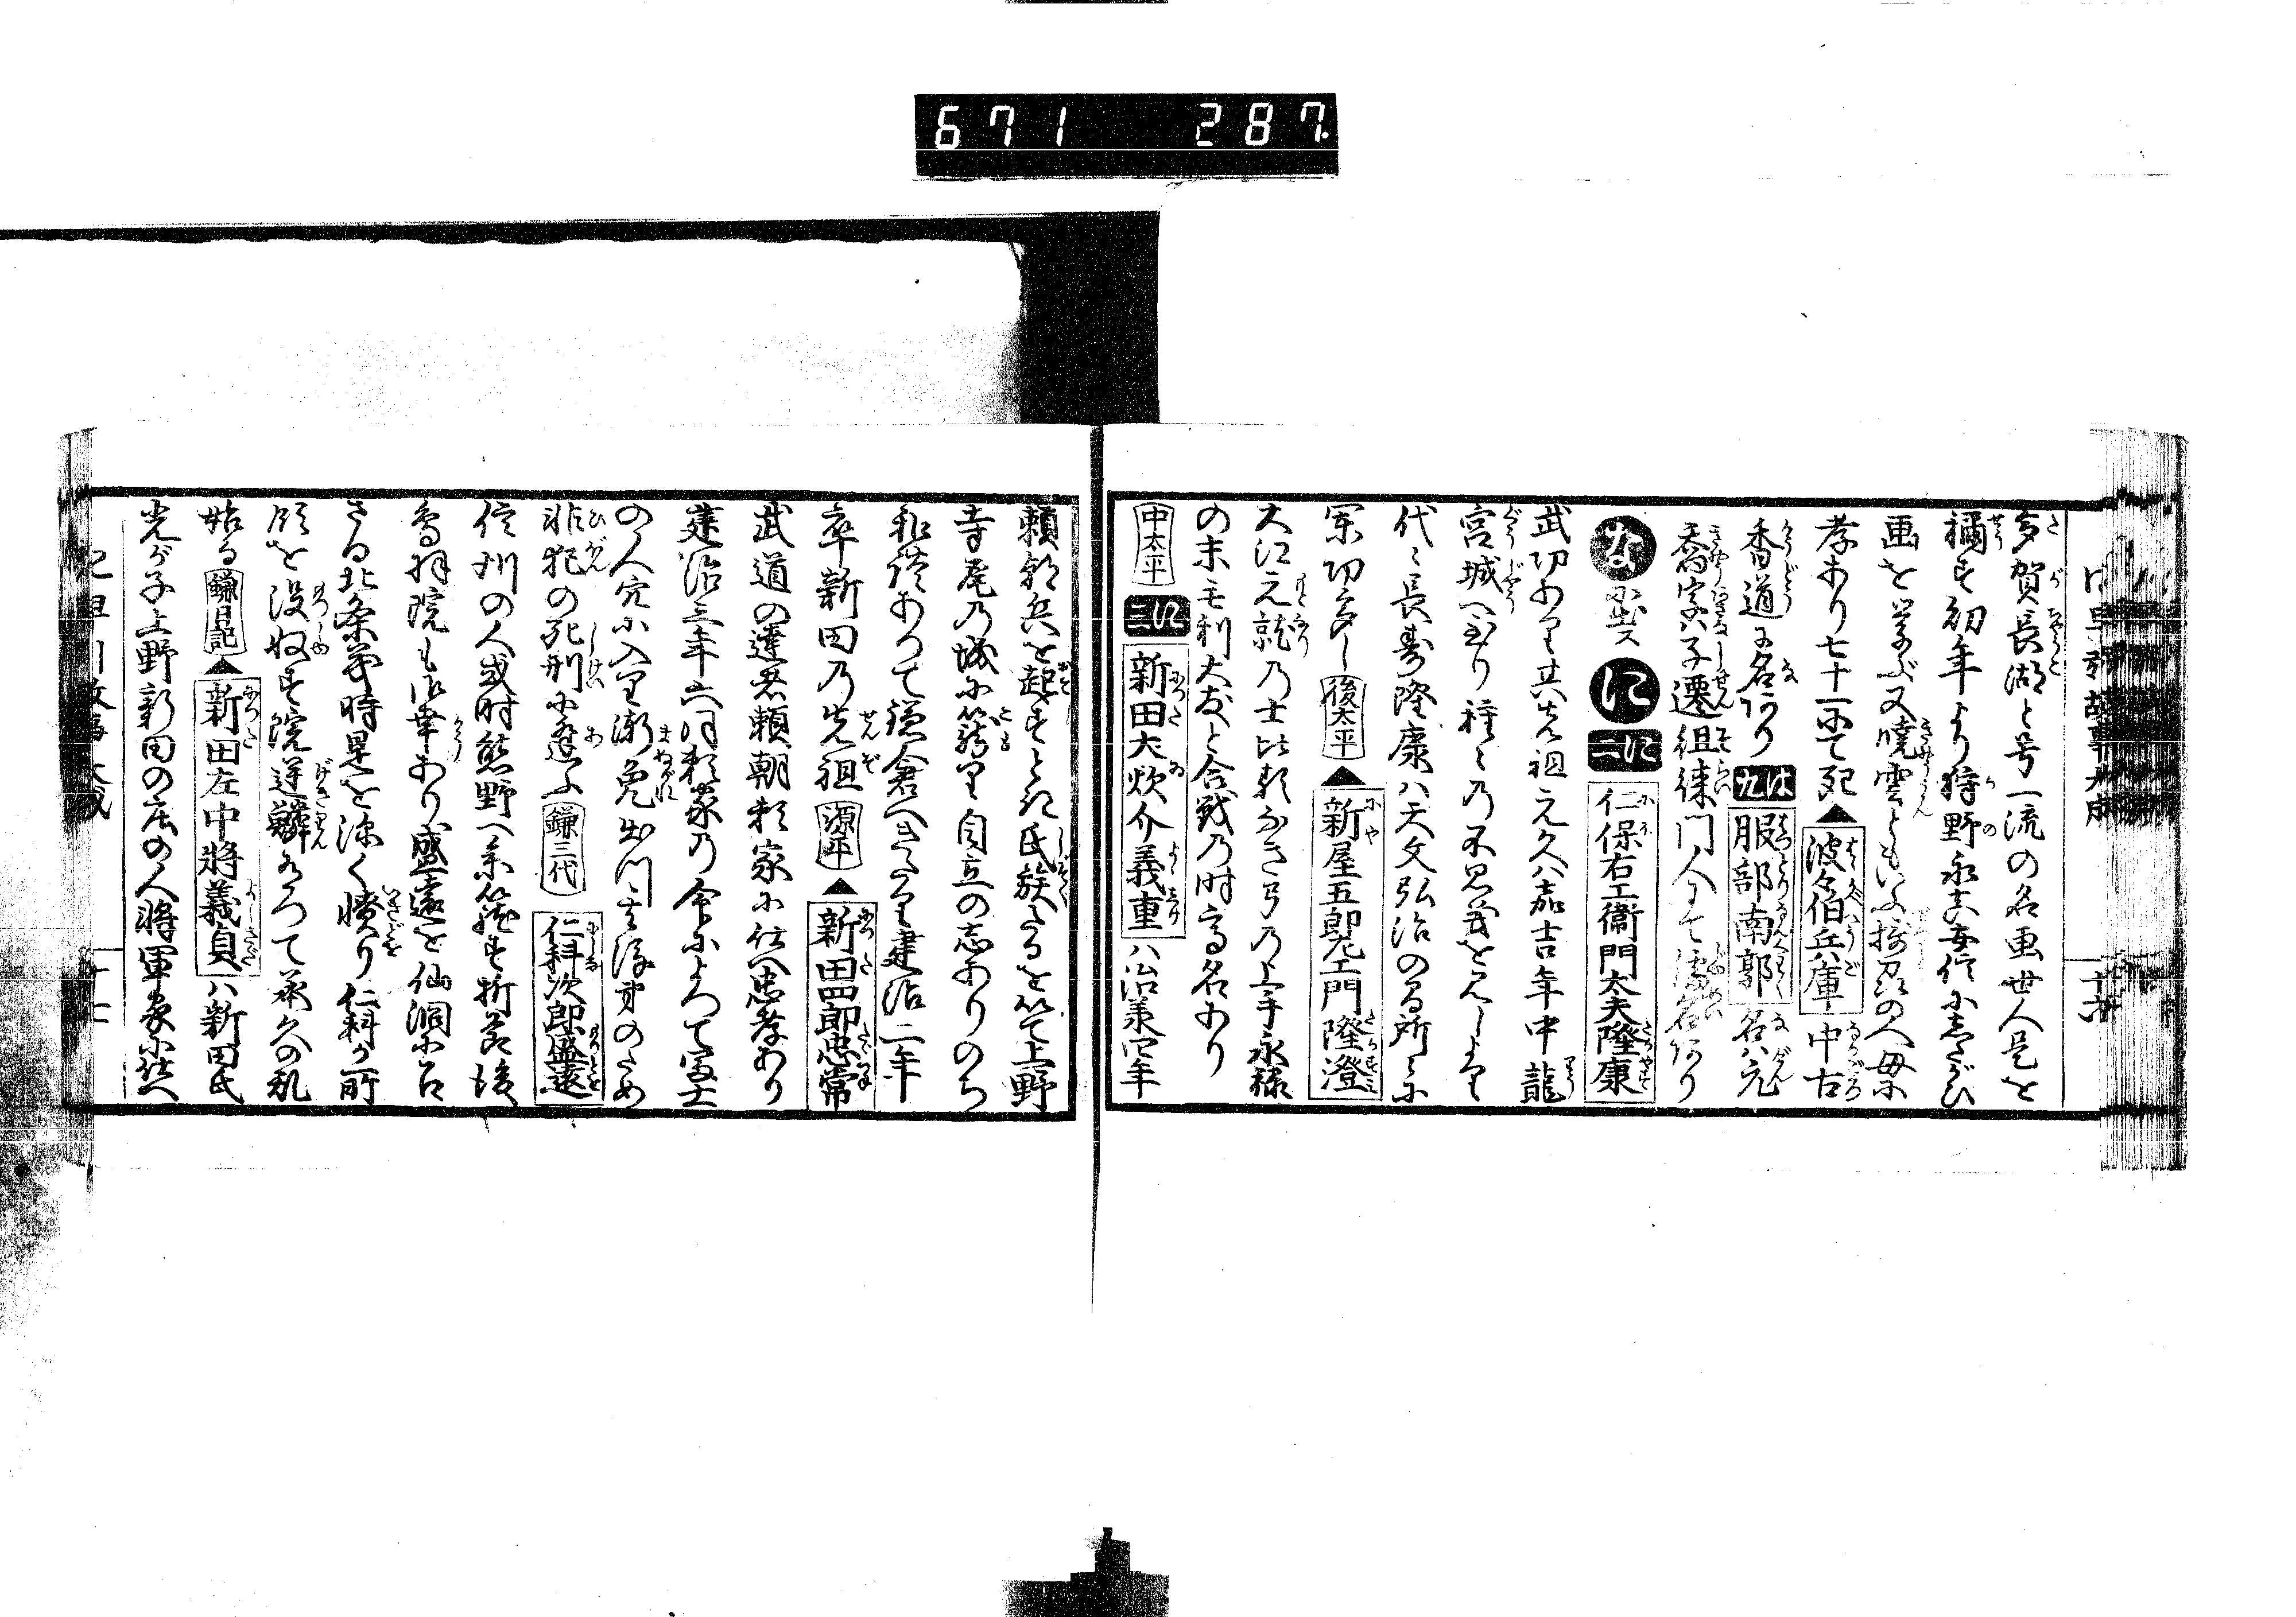 671 287
多賀長湖と号一流の名画世人是を
稱す初年より狩野永真安信にしたがひ
画を学ぶ又暁雲ともいふ摂刕の人母に
孝あり七十一にて死▲波々伯兵庫中古
香道に名あり は九 服部南郭名ハ元
喬字ハ子遷徂徠門人にて儒名あり
な に に二 仁保右エ衛門太夫隆康
武功あり其先祖元久ハ嘉吉年中龍
宮城へ至り種々の不思義を見しより
代々長寿隆康ハ天文弘治のる所々に
軍功多し 後太平 ▲新屋五郎左エ門隆澄
大江元就の士比類なき弓の上手永禄
の末毛利大友と合戦の時高名あり
中太平 に三 新田大炊介義重ハ治承四年
頼朝兵を起すとき氏族たるを以て上野
寺尾の城に籠り自立の志ありのち
和談あつて鎌倉へきたり建治二年
卒新田の先祖 源平 ▲新田四郎忠常
武道の達者頼朝頼家に仕へ忠孝あり
建治三年六月頼家の命によつて富士
の人穴に入り漸免出門す後讒のため
非犯の死刑に逢ふ 鎌三代 仁科次郎盛遠
信州の人或时熊野へ参籠す折節後
鳥羽院も御幸あり盛遠を仙洞に召
さる北条義時是を深く憤り仁科が所
領を没収す院逆鱗あつて承久の乱
始る 鎌日記 ▲新田左中将義貞ハ新田氏
光が子上野新田の庄の人将軍家に仕へ
十六
十七